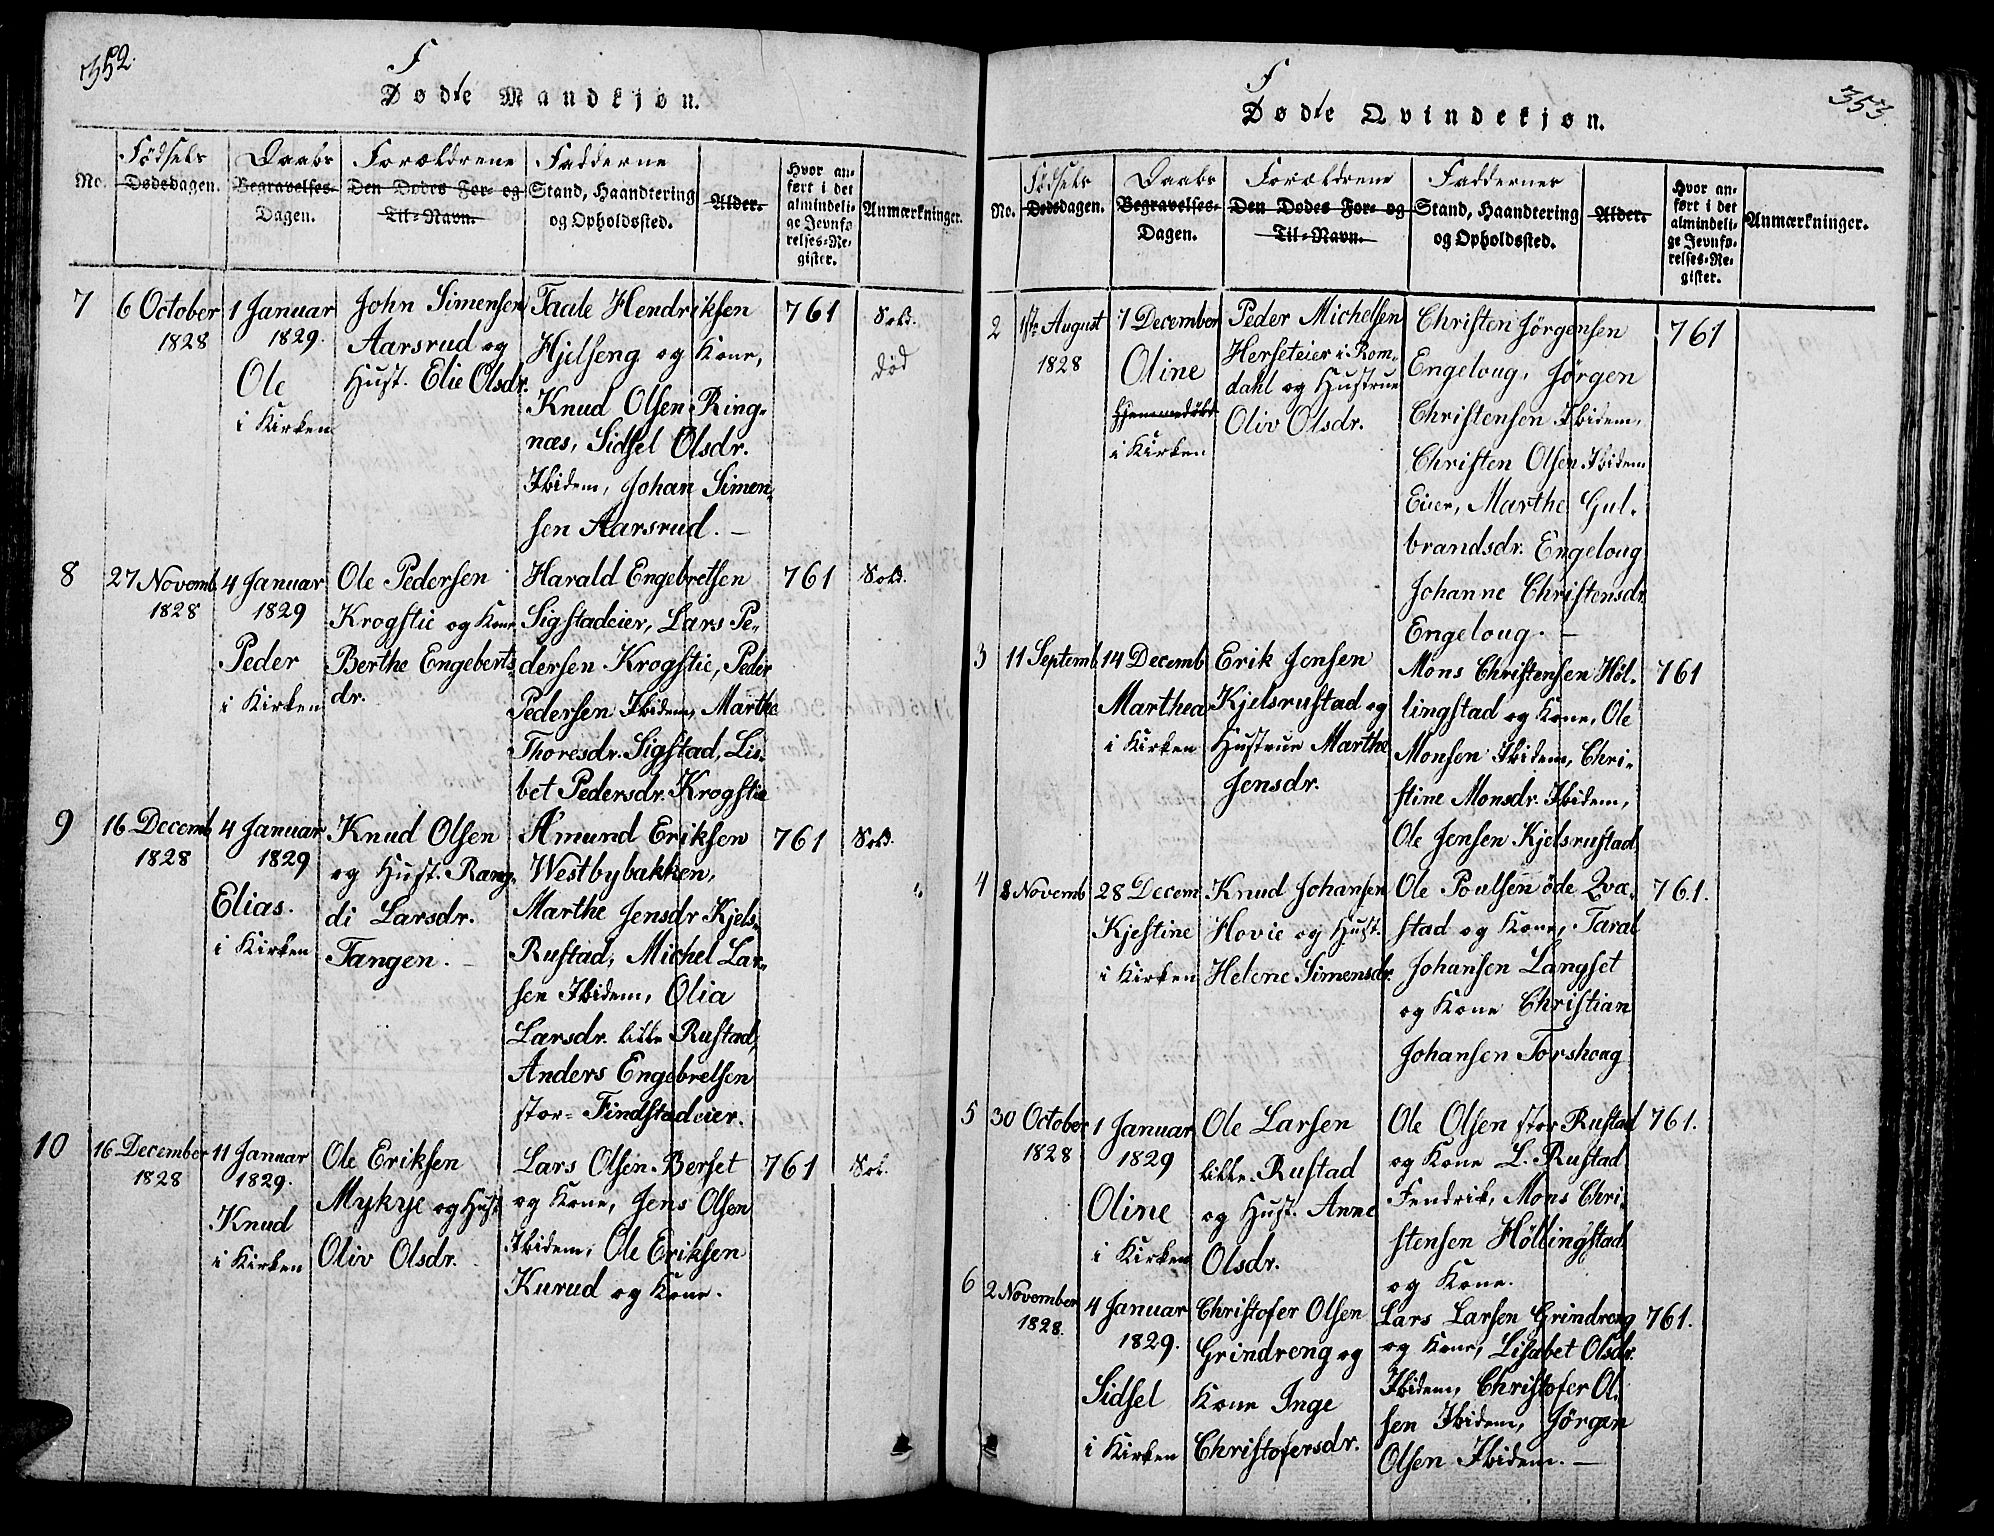 352.
F
Dødte Mandkjøn.
No.
Fødsels
Dødsdagen.
Daabs
Begravelses-
Dagen.
Forældrene
Den Dødes For- og
Til-Navn.
Fadderne
Stand, Haandtering
og Opholdssted.
Alder.
Hvor an-
ført i det
almindeli-
ge Jevnfø-
relses-Re-
gister.
Anmærkninger.
7
6 October
1828
1 Januar
1829.
Ole
i Kirken
John Simensen
Aarsrud og
Hust. Elie Olsdr.
Taale Hendriksen
Hjelseng og Kone,
Knud Olsen Ring-
næs, Sidsel Olsdr.
Ibidem, Johan Simen-
sen Aarsrud. —
761
død
8
27 Novemb
1828
4 Januar
1829
Peder
i Kirken
Ole Pedersen
Krogstie og Kone
Berthe Engeberts-
dr.
Harald Engebretsen
Sigstadeier, Lars Pe-
dersen Krogstie, Peder
Pedersen Ibidem, Marthe
Thoresdr. Sigstad, Lis-
bet Pedersdr. Krogstie
761
9
16 Decemb
1828
4 Januar
1829
Elias.
i Kirken
Knud Olsen
og Hust. Rang-
di Larsdr.
Tangen. —
Amund Eriksen
Westbybakken,
Marthe Jensdr Kjels-
Rustad, Michel Lar-
sen Ibidem, Olia
Larsdr. lille Rustad,
Anders Engebretsen
stor- Findstadeier.
761
10
16 December
1828
11 Januar
1829.
Knud
i Kirken
Ole Eriksen
Mykye og Hust
Oliv Olsdr.
Lars Olsen Berset
og Kone, Jens Olsen
Ibidem, Ole Eriksen
Kurud og Kone.
761
353.
F
Dødte Qvindekjøn.
No.
Fødsels
Dødsdagen.
Daabs
Begravelses-
Dagen.
Forældrene
Den Dødes For- og
Til-Navn.
Faddernes
Stand, Haandtering
og Opholdssted.
Alder.
Hvor an-
ført i det
almindeli-
ge Jevnfø-
relses-Re-
gister.
Anmærkninger.
2
1ste August
1828
7 December
Oline
hjemmedøbt
i Kirken
Peder Michelsen
Herseteier i Rom-
dahl og Hustrue
Oliv Olsdr.
Christen Jørgensen
Engeloug, Jørgen
Christensen Ibidem,
Christen Olsen Ibidem
Eier, Marthe Gul-
brandsdr. Engeloug
Johanne Christensdr.
Engeloug. —
761
3
11 Septemb
14 Decemb
Marthea
i Kirken
Erik Jensen
Kjelsrustad og
Hustrue Marthe
Jensdr.
Mons Christensen Høl-
lingstad og Kone, Ole
Monsen Ibidem, Chri-
stine Monsdr. Ibidem,
Ole Jensen Kjelsrustad
761
4
8 Novemb
28 Decem
Kjestine
i Kirken
Knud Johansen
Hovie og Hust.
Helene Simensdr.
Ole Poulsen øde Qvæ-
stad og Kone, Taral
Johansen Langset
og Kone Christian
Johansen Torshoug
761.
5
30 October
1828
1 Januar
1829
Oline
i Kirken
Ole Larsen
lille Rustad
og Hust. Anne
Olsdr.
Ole Olsen stor Rustad
og Kone L. Rustad
Fendrik, Mons Chri-
stensen Høllingstad
og Kone.
761.
6
2 November
1828.
4 Januar
1829.
Sidsel
i Kirken
Christofer Olsen
Grindreng og
Kone Inge
Christofersdr.
Lars Larsen Grindreng
og Kone, Lisabet Olsdr.
Ibidem, Christofer Ol-
sen Ibidem, Jørgen
Olsen Ibidem. —
761.